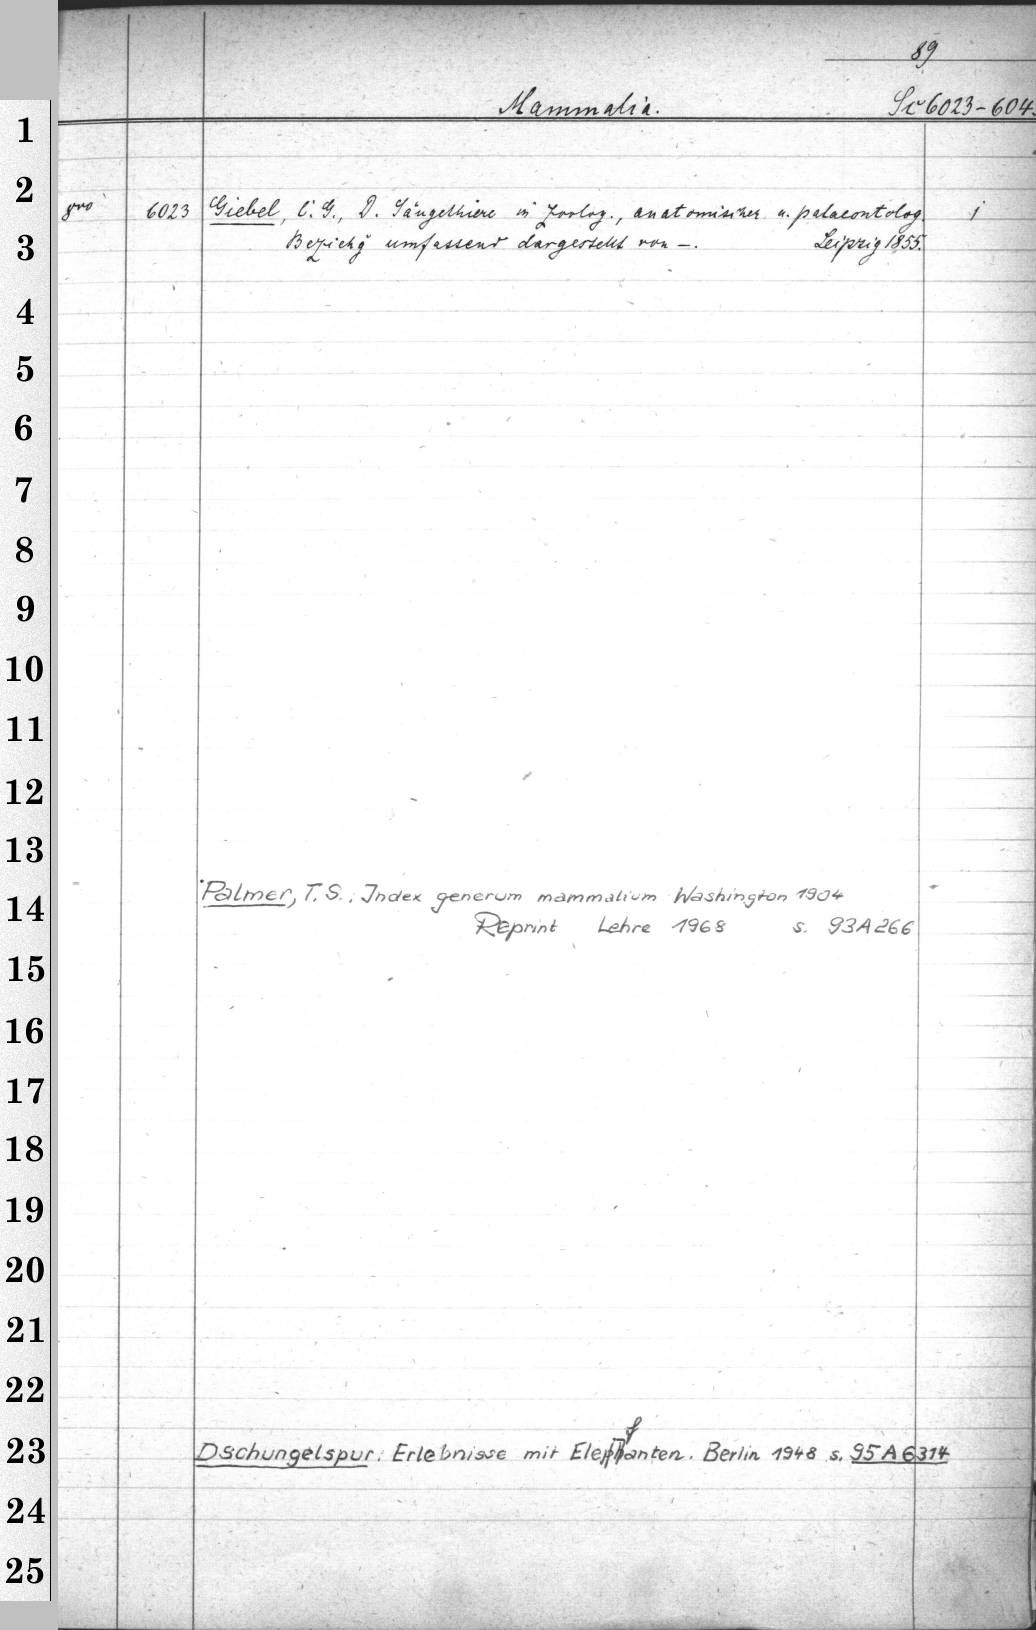 89
Mammalia. Sc 6023-604
1
2
8vo 6023 Giebel, C. G., D. Säugethiere in zoolog., anatomischer u. palaeontolog. 1
3 Beziehg umfassend dargestellt von –. Leipzig 1855.
4
5
6
7
8
9
10
11
12
13
Palmer, T. S.: Index generum mammalium Washington 1904
14 Reprint Lehre 1968 s. 93A266
15
16
17
18
19
20
21
22
f
23 Dschungelspur: Erlebnisse mit Elephanten. Berlin 1948 s. 95A6314
24
25